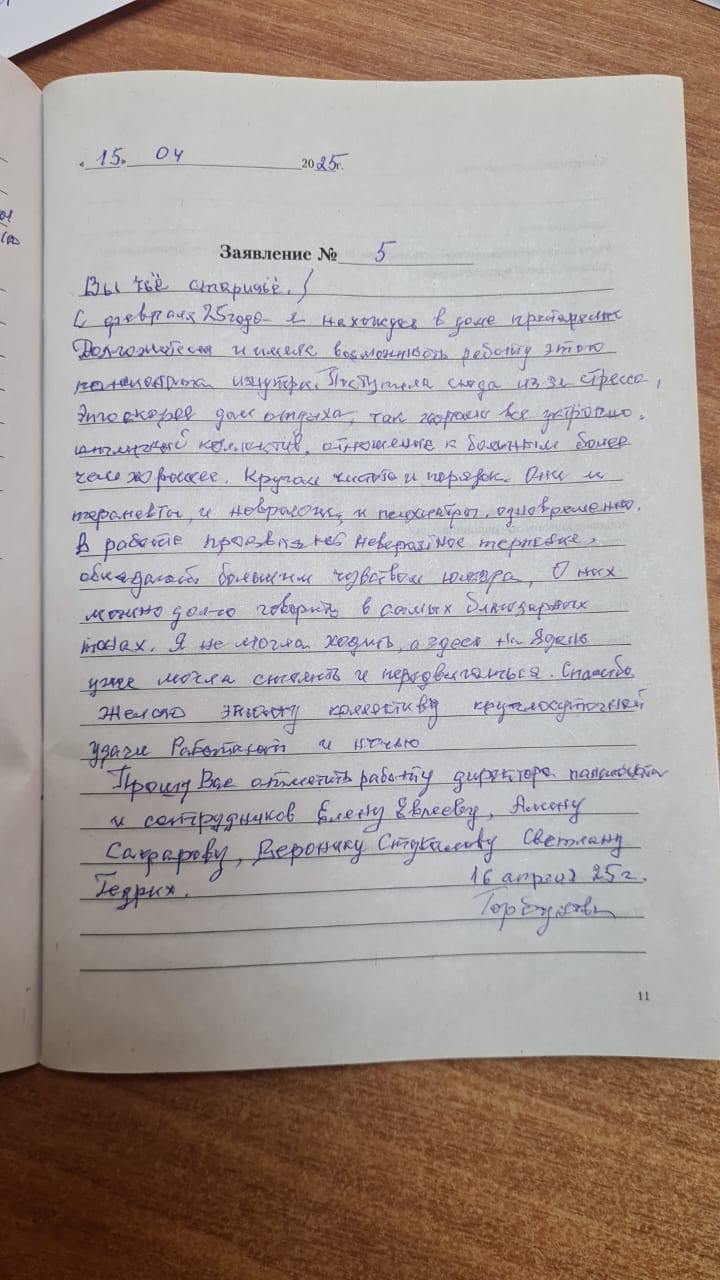 « 15 » 04 2025г.
Заявление № 5
Вы чьё старичьё.
С февраля 25 года я нахожусь в доме престарелых
Долгожители и имела возможность работу этого
изнутри. Поступила сюда из за стресса,
Это скорее дом отдыха, так хорошо все устроено.
коллектив, отношение к больным более
чем хорошее. Кругом чистота и порядок. Они и
терапевты, и неврологи, и психиатры одновременно.
В работе невероятное терпение,
обладают большим чувством юмора, О них
можно долго говорить в самых благодарных
тонах. Я не могла ходить, а здесь на день
уже могла стоять и передвигаться. Спасибо
Желаю этому коллективу круглосуточной
удачи Работают и ночью
Прошу Вас отметить работу директора пансионата
и сотрудников Елену Евлееву,
Сафарову, Веронику Стукалову Светлану
Гедрих. 16 апреля 25 г.
11